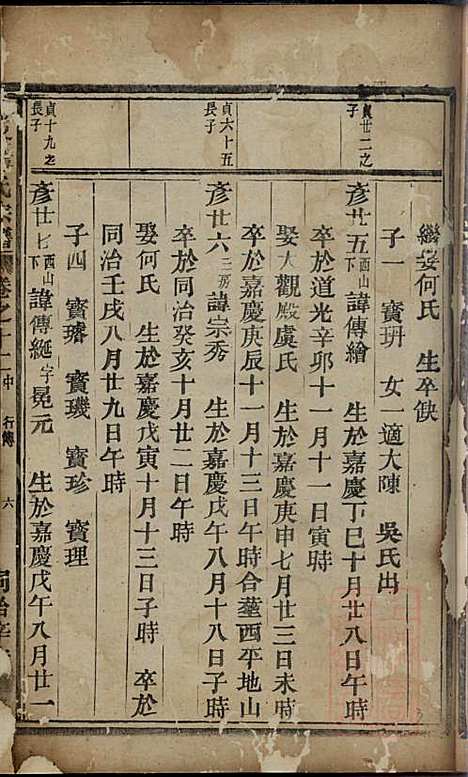 繼娶何氏 生卒缺
子一 寶玬 女一適大陳 吳氏出
貞廿二之
子
彥廿五西山下諱傳繪 生於嘉慶丁巳十月廿八日午時
卒於道光辛卯十一月十一日寅時
娶大觀殿虞氏 生於嘉慶庚申七月廿三日未時
卒於嘉慶庚辰十一月十三日午時合塟西平地山
貞六十五
長子
彥廿六三房諱宗秀 生於嘉慶戊午八月十八日子時
卒於同治癸亥十月廿二日午時
娶何氏 生於嘉慶戊寅十月十三日子時 卒於
同治壬戌八月廿九日午時
子四 寶璿 寶璣 寶珍 寶理
貞十九之
長子
彥廿七西山下諱傳綖字冕元 生於嘉慶戊午八月廿一
氏宗譜 卷之十二中 行傳 六 同治辛